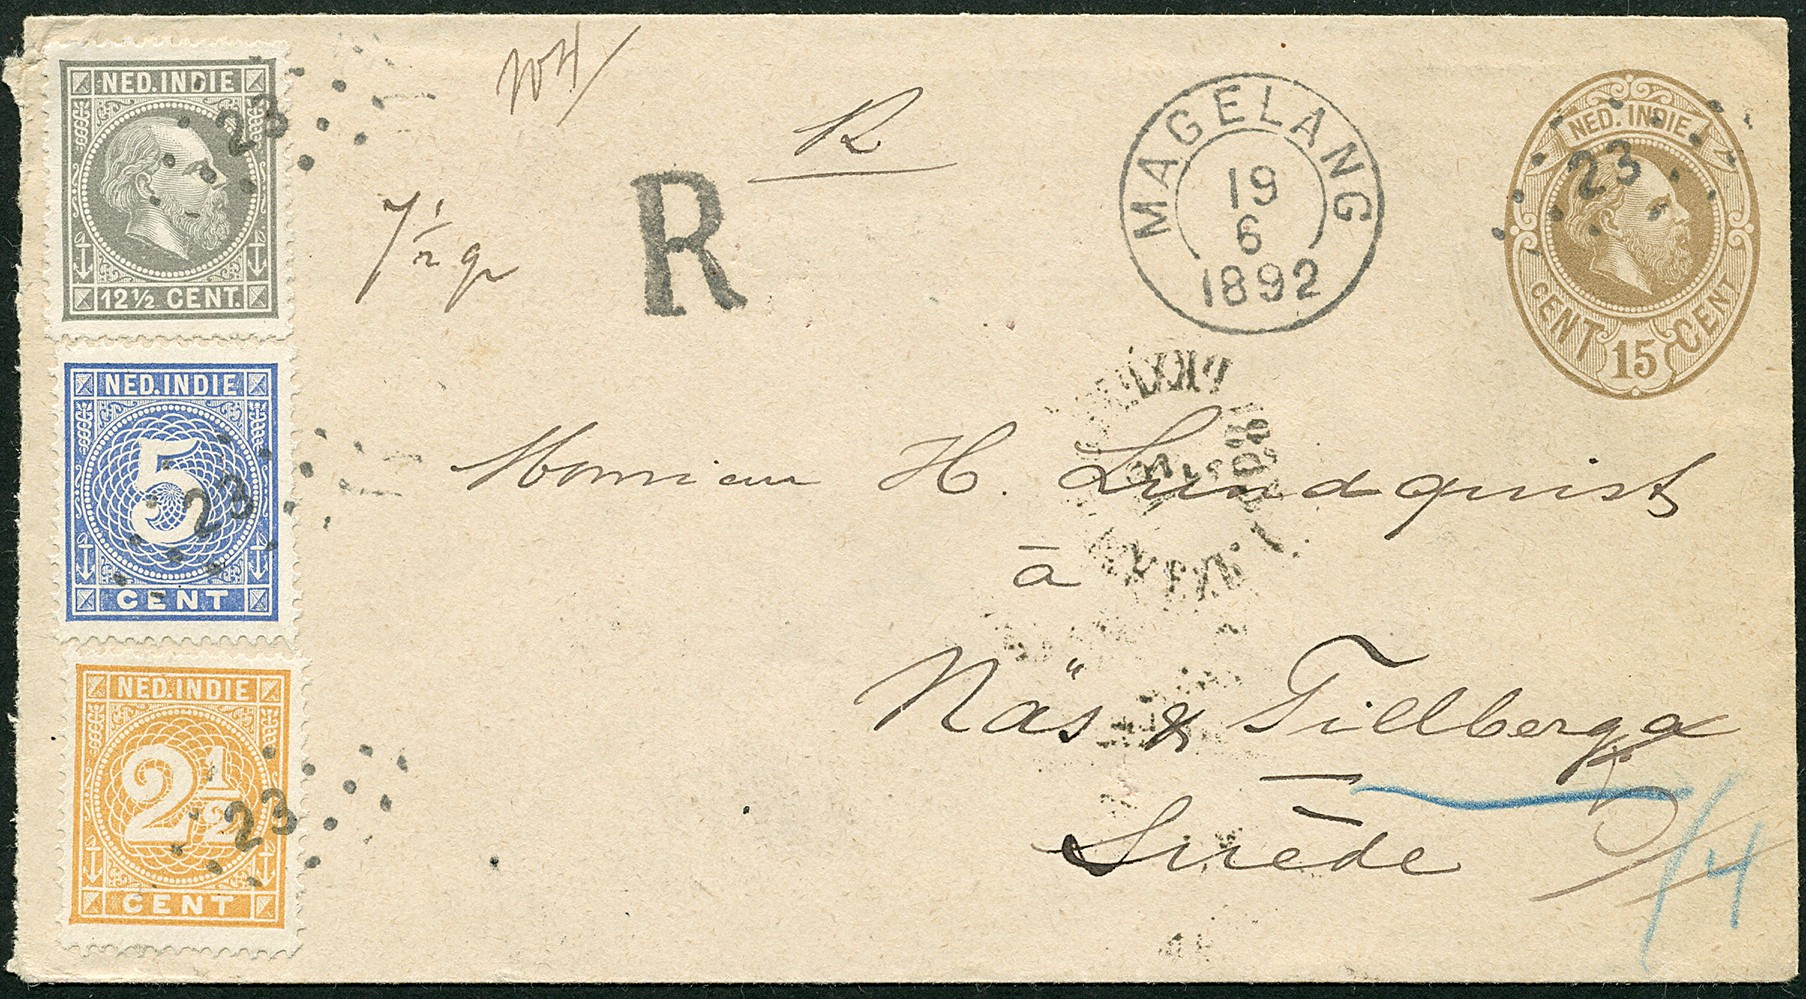 NED. INDIE
23
12½ CENT.
NED. INDIE
5
23
CENT
NED. INDIE
2½
23
CENT
R
7½ gr
R
MAGELANG
19
6
1892
NED. INDIE
23
CENT 15 CENT
Monsieur H. Lundquist
à
Näs & Tillberga
Suède
14